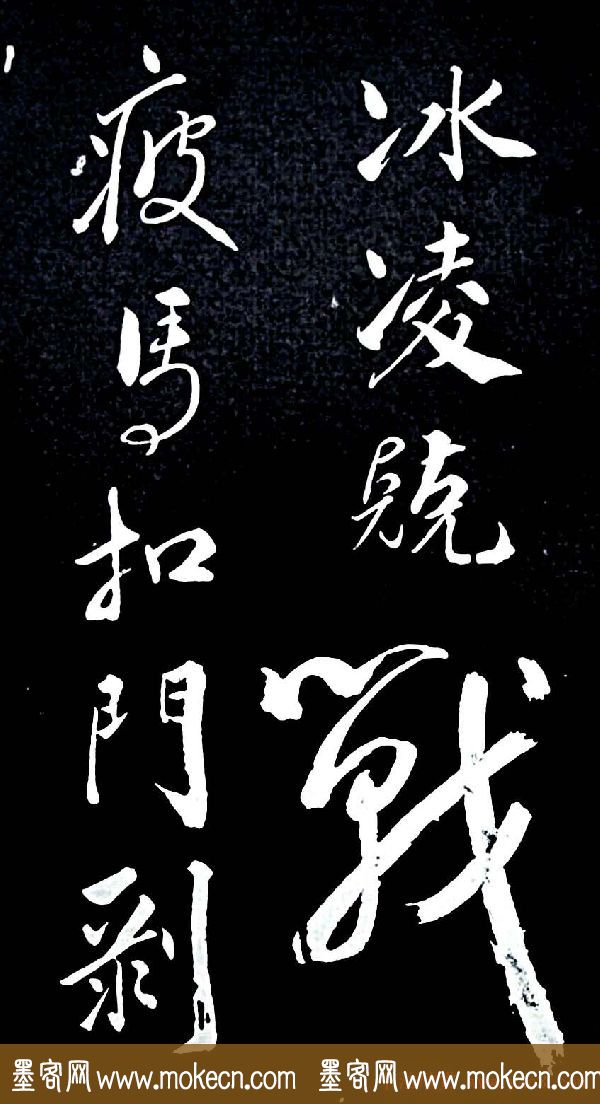 冰凌兢戰
疲馬扣門剝
墨客网 www.mokecn.com 墨客网 www.mokecn.com